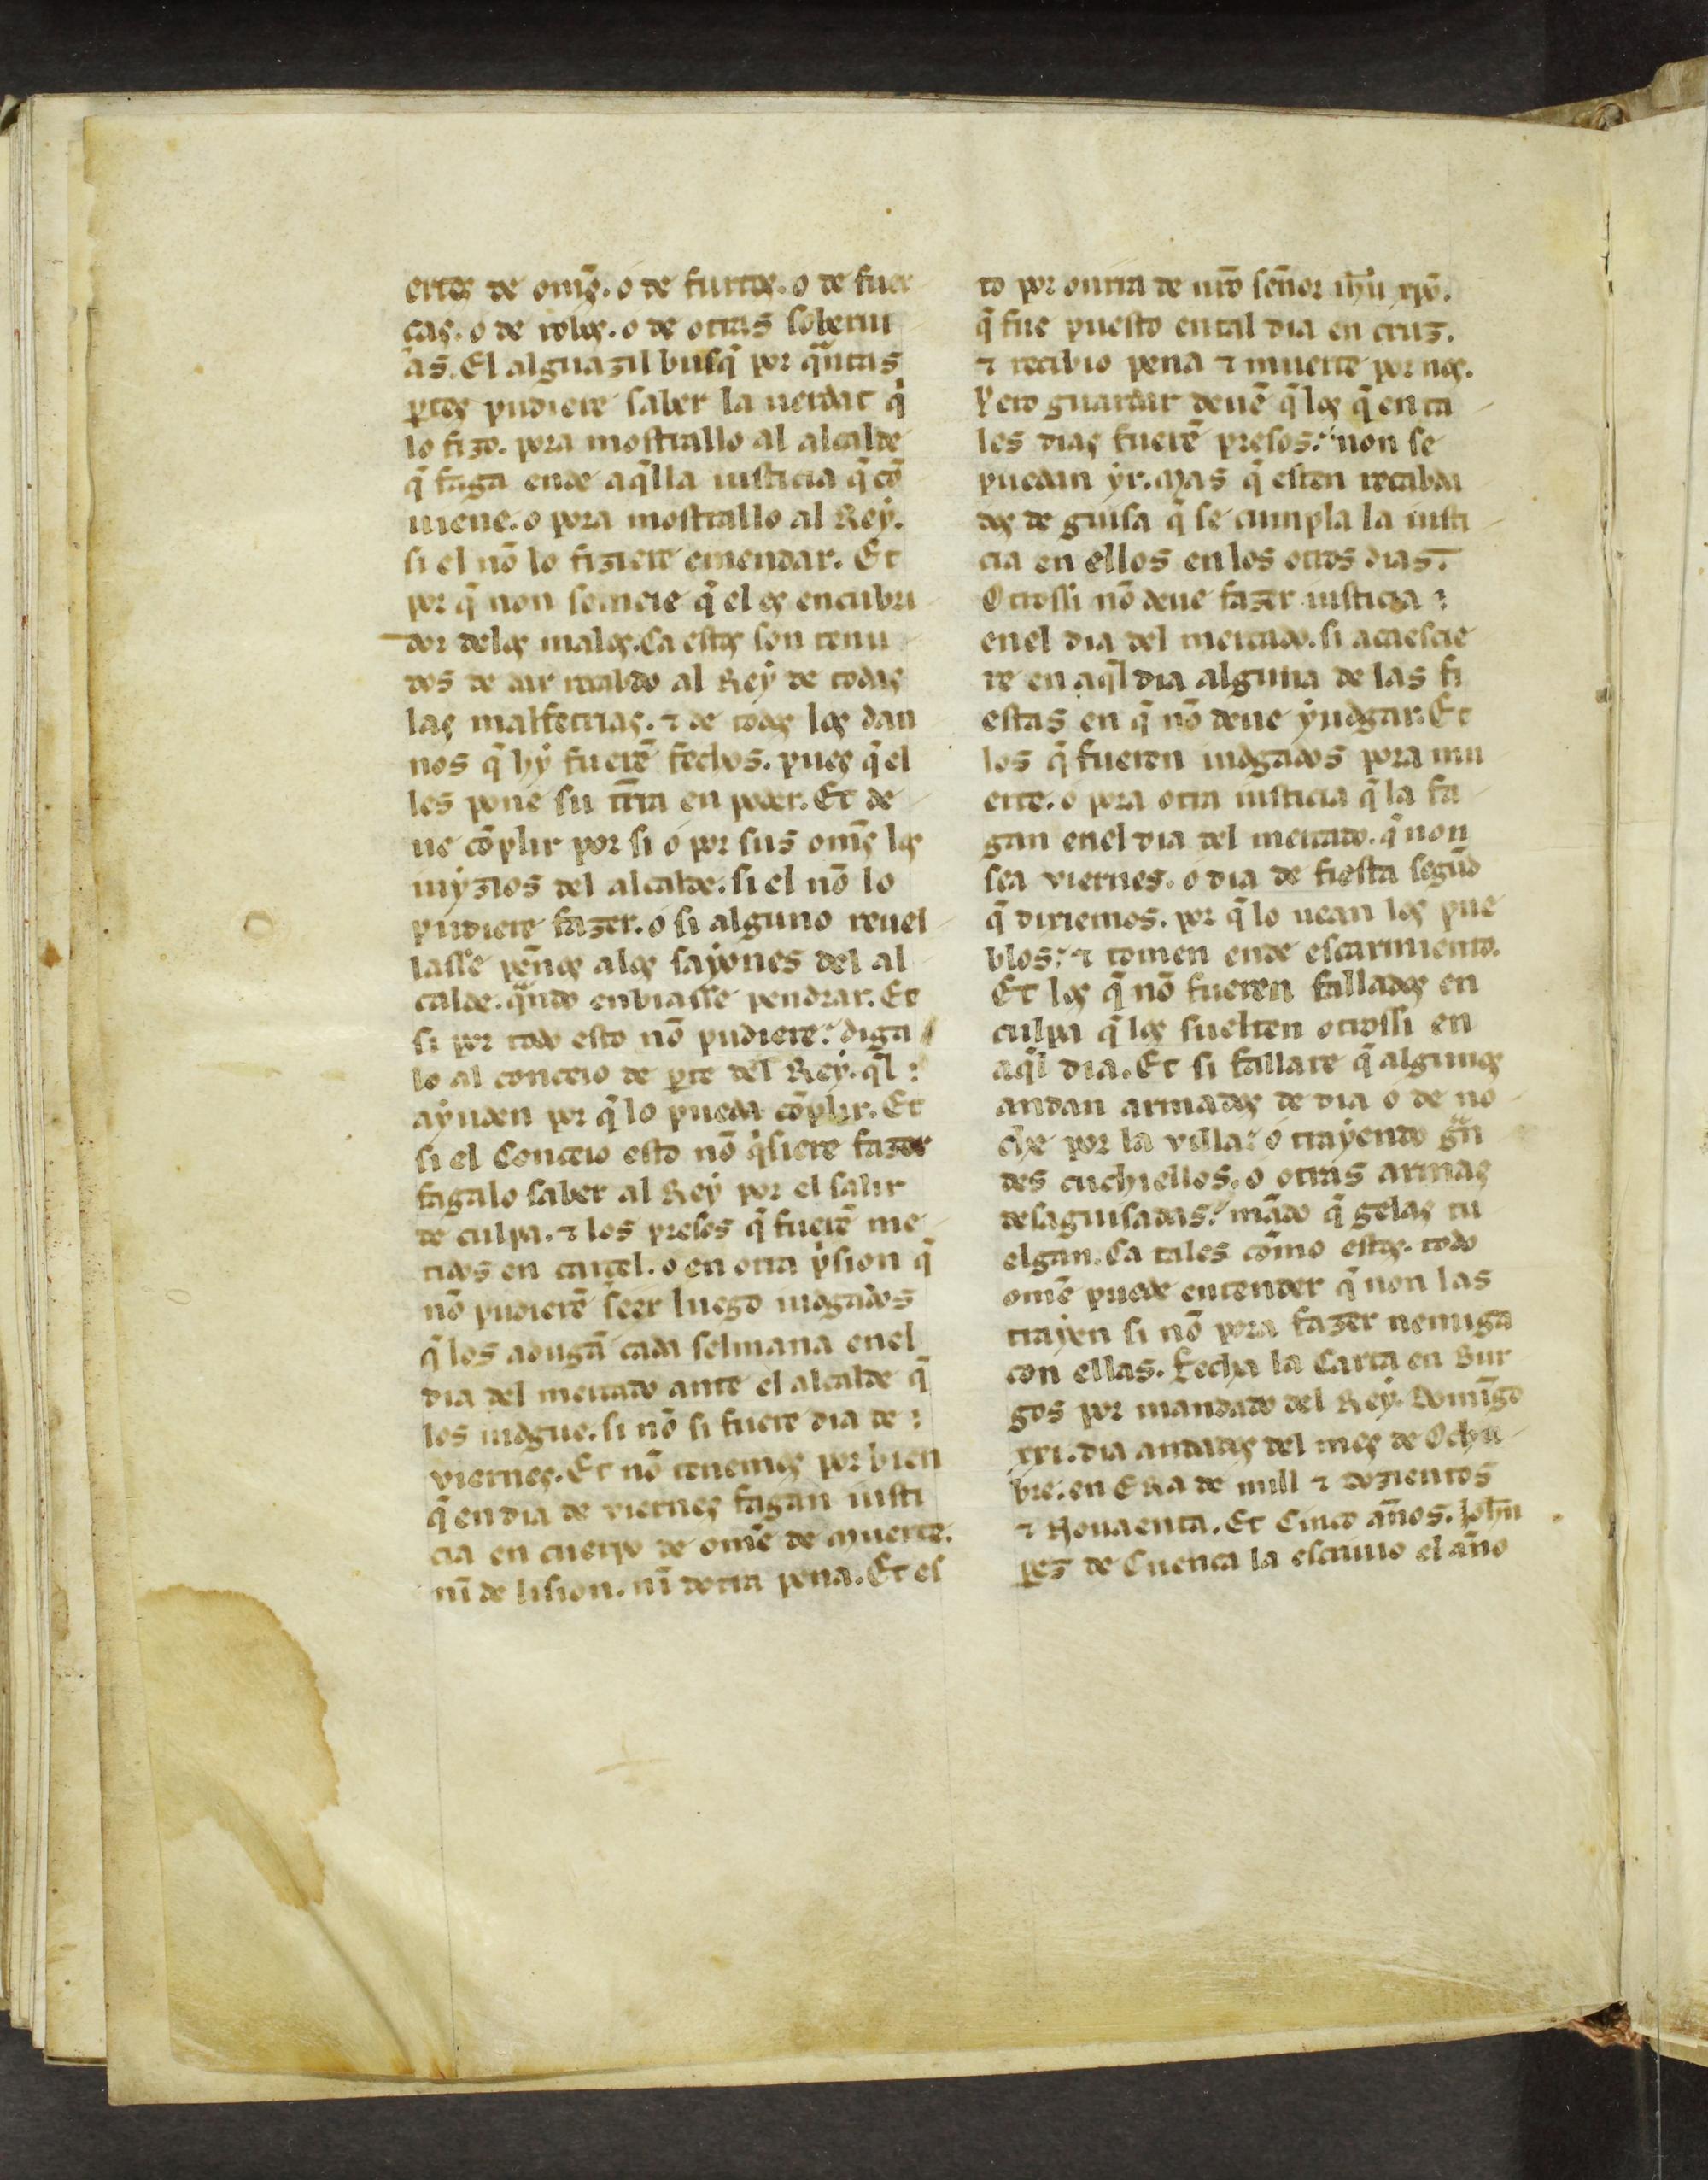 ertos de om̃s. o de furtos. o de fuer
ças. o de robos. o de otras soberui
as. El alguazil busq̃ por quãtas
ꝑtes pudiere saber la uerdat qͥ
lo fizo. pora mostrallo al alcalde
q̃ faga ende aq̃lla iusticia q̃ cõ
uiene. o pora mostrallo al Reẏ.
si el nõ lo fiziere emendar. Et
por q̃ non semeie q̃ el es encubri
dor delos malos. Ca estos son tenu
dos de dar recabdo al Reẏ de todas
las malfetrias. ⁊ de todos los dan
nos q̃ hẏ fuerẽ fechos. pues q̃ el
les pone su tr̃ra en poder. Et de
ue cõplir por si o por sus om̃s los
iuẏzios del alcalde. si el nõ lo
pudiere fazer. o si alguno reuel
lasse pẽnos alos saẏones del al
calde. quãdo enbiasse pendrar. Et
si por todo esto nõ pudiere: diga
lo al conceio de ꝑte del Reẏ. q̃l :
aẏuden por q̃ lo pueda cõplir. Et
si el Conceio esto nõ qͥsiere fazer
fagalo saber al Reẏ por el salir
de culpa. ⁊ los presos q̃ fuerẽ me
tidos en carcel. o en otra pͥsion q̃
nõ pudierẽ seer luego iudgados
q̃ los adugã cada selmana enel
dia del mercado ante el alcalde q̃
los iudgue. si nõ si fuere dia de :
viernes. Et nõ tenemos por bien
q̃ en dia de viernes fagan iusti
cia en cuerpo de omẽ de muerte.
nĩ de lision. nĩ dotra pena. Et es
to por onrra de nr̃o sen̄or ih̃u xp̃o.
q̃ fue puesto en tal dia en cruz.
⁊ recibio pena ⁊ muerte por nos.
Pero guardar deuẽ q̃ los q̃ en ta
les dias fuerẽ presos: non se
puedan ẏr. Mas q̃ esten recabda
dos de guisa q̃ se cumpla la iusti
cia en ellos en los otros dias.
Otrossi nõ deue fazer iusticia :
enel dia del mercado. si acaescie
re en aq̃l dia alguna de las fi
estas en q̃ nõ deue ẏudgar. Et
los q̃ fueren iudgados pora mu
erte. o pora otra iusticia q̃ la fa
gan enel dia del mercado. q̃ non
sea viernes. o dia de fiesta segũd
q̃ dixiemos. por q̃ lo uean los pue
blos: ⁊ tomen ende escarmiento.
Et los q̃ nõ fueren fallados en
culpa q̃ los suelten otrossi en
aq̃l dia. Et si fallare q̃ algunos
andan armados de dia o de no
che por la villa: o traẏendo grã
des cuchiellos. o otras armas
desaguisadas: mãdo q̃ gelas tu
elgan. Ca tales cõmo estos. todo
omẽ puede entender q̃ non las
traẏen si nõ pora fazer nemiga
con ellas. Fecha la Carta en Bur
gos por mandado del Reẏ. Domĩgo
xxi. dia andados del mes de Ochu
bre. en ERa de mill ⁊ dozientos
⁊ Nouaenta. Et Cinco an̄os. Ioh̃n
ꝑez de Cuenca la escriuio el an̄o